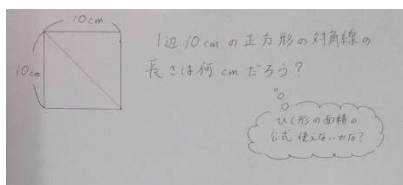 10cm
10cm
1辺10cmの正方形の対角線の
長さは何cmだろう？
ひし形の面積の
公式使えないかな？